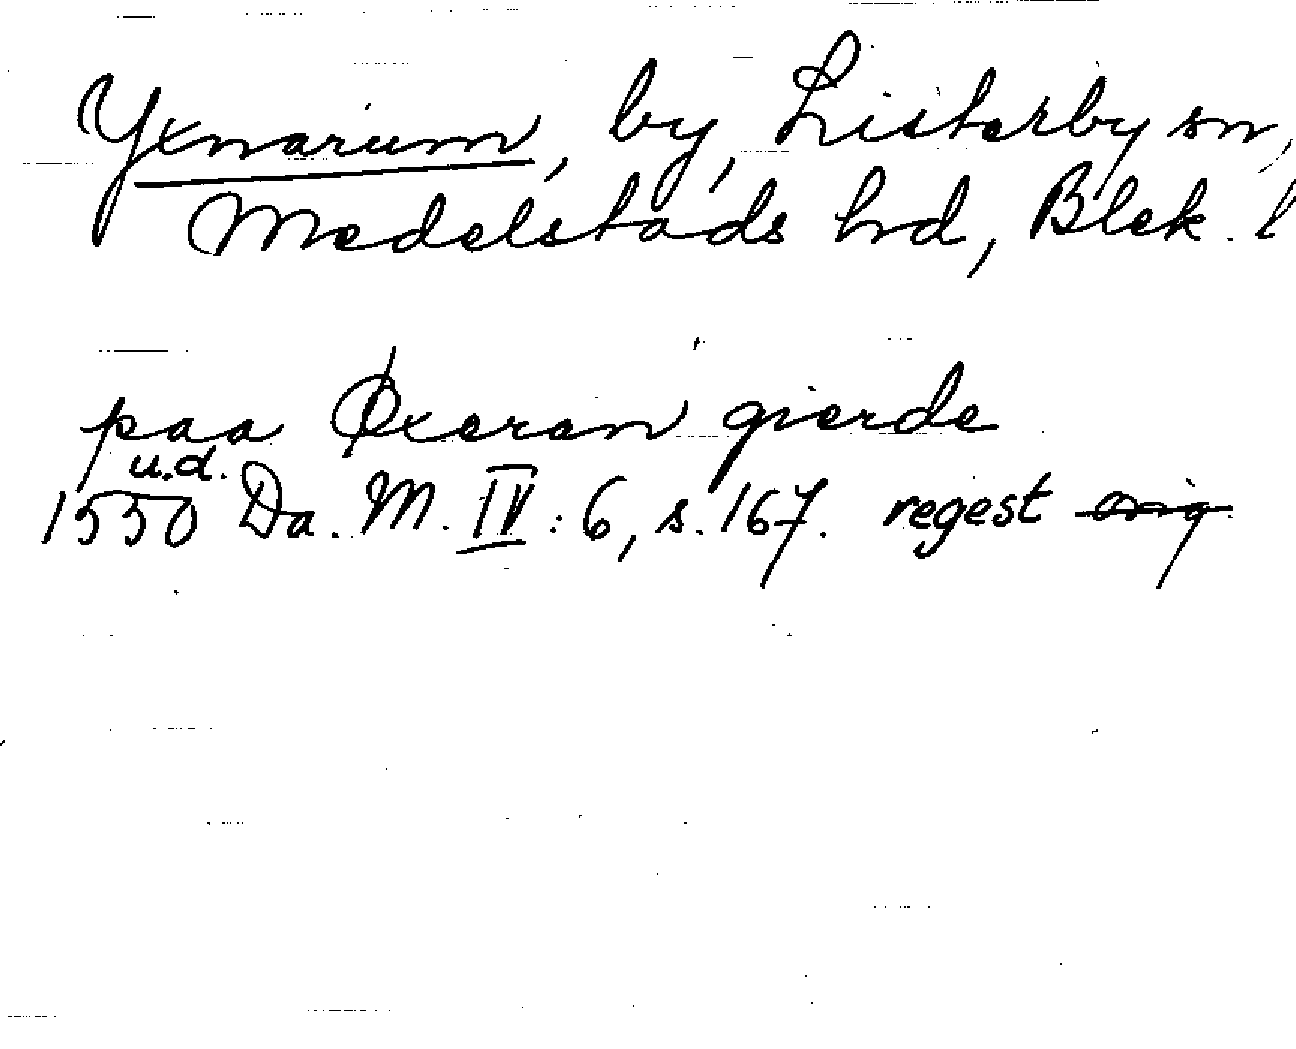 Yxnarum, by, Listerby sn,
Medelstads hd, Blek. l
paa Øxeran gierde
u.d.
1550 Da. M. IV : 6, s. 167. regest orig